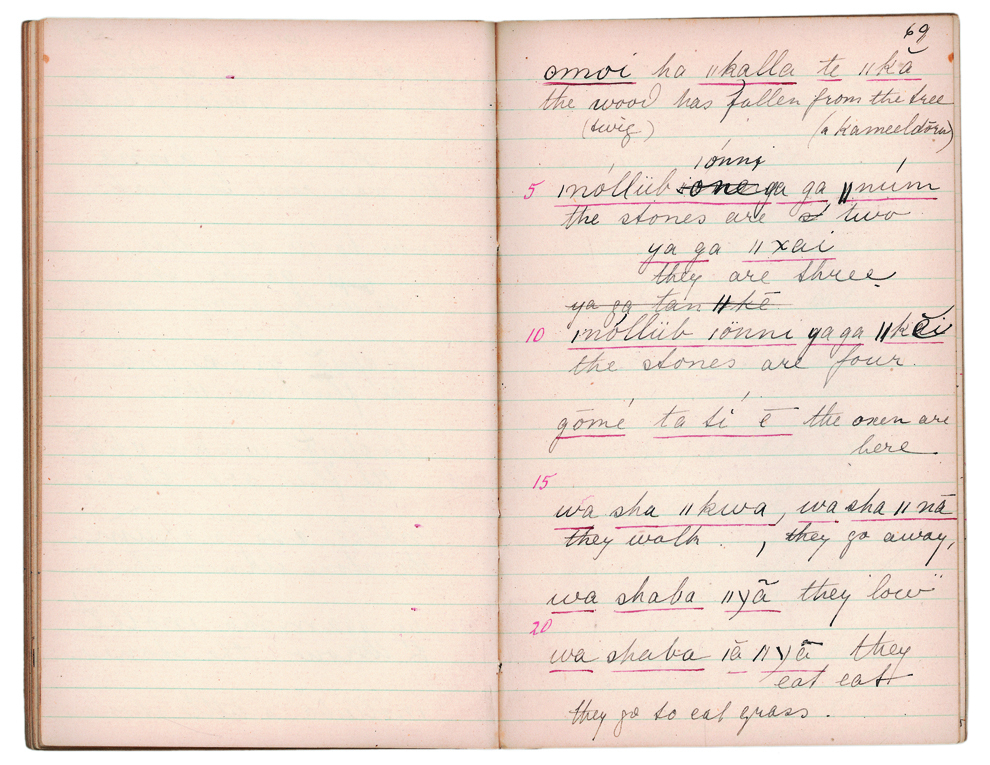 69
omoi ha ǁkalla te ǁkã̆
the wood has fallen from the tree
(twig) (a Kameeldorn)
ıónni
5 ınóllüb ga ga ǁnúm
the stones are two
ya ga ǁxai
they are three
ya ga tan ǁkē
10 ınóllüb ıönni yaga ǁkc̆i
the stones are four.
gōmé ta tí ē the oxen are
here
15
wa sha ǁkwa, wa sha ǁnā
they walk , they go away,
wa shaba ǁyã they "low"
20
wa shaba ıā ǁyã they
eat eat
they go to eat grass.